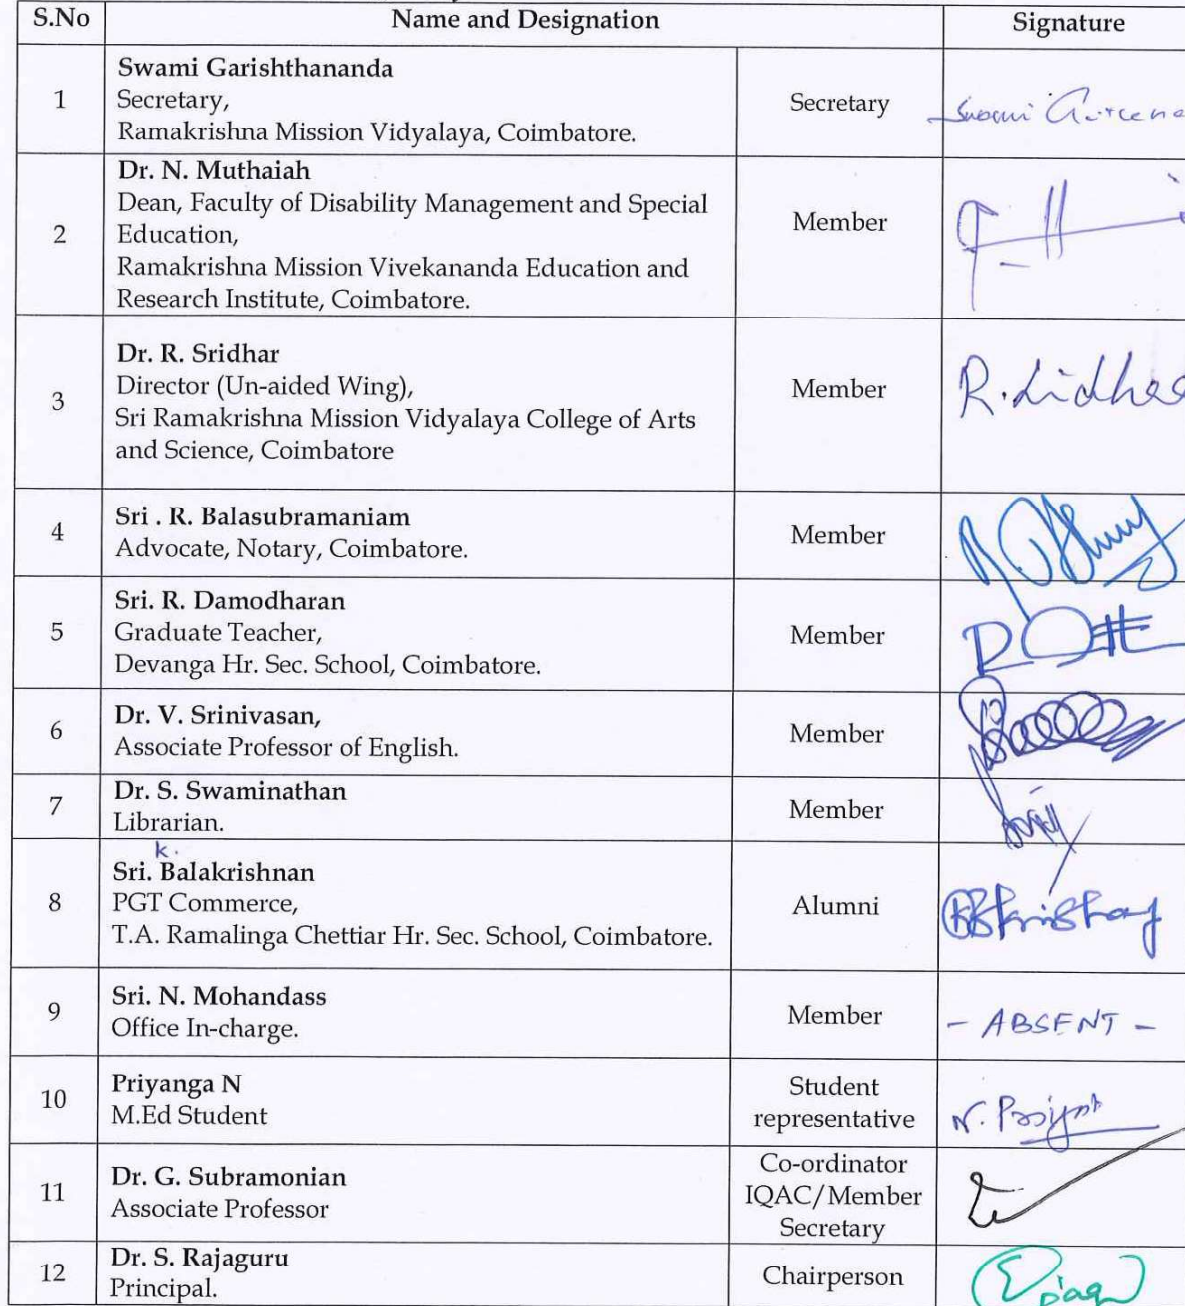 S.No Name and Designation Signature
1 Swami Garishthananda
Secretary,
Ramakrishna Mission Vidyalaya, Coimbatore. Secretary Swami
2 Dr. N. Muthaiah
Dean, Faculty of Disability Management and Special
Education,
Ramakrishna Mission Vivekananda Education and
Research Institute, Coimbatore. Member
3 Dr. R. Sridhar
Director (Un-aided Wing),
Sri Ramakrishna Mission Vidyalaya College of Arts
and Science, Coimbatore Member R.
4 Sri . R. Balasubramaniam
Advocate, Notary, Coimbatore. Member
5 Sri. R. Damodharan
Graduate Teacher,
Devanga Hr. Sec. School, Coimbatore. Member
6 Dr. V. Srinivasan,
Associate Professor of English. Member
7 Dr. S. Swaminathan
Librarian. Member
k.
8 Sri. Balakrishnan
PGT Commerce,
T.A. Ramalinga Chettiar Hr. Sec. School, Coimbatore. Alumni
9 Sri. N. Mohandass
Office In-charge. Member - ABSENT -
10 Priyanga N
M.Ed Student Student
representative N.
11 Dr. G. Subramonian
Associate Professor Co-ordinator
IQAC/Member
Secretary
12 Dr. S. Rajaguru
Principal. Chairperson